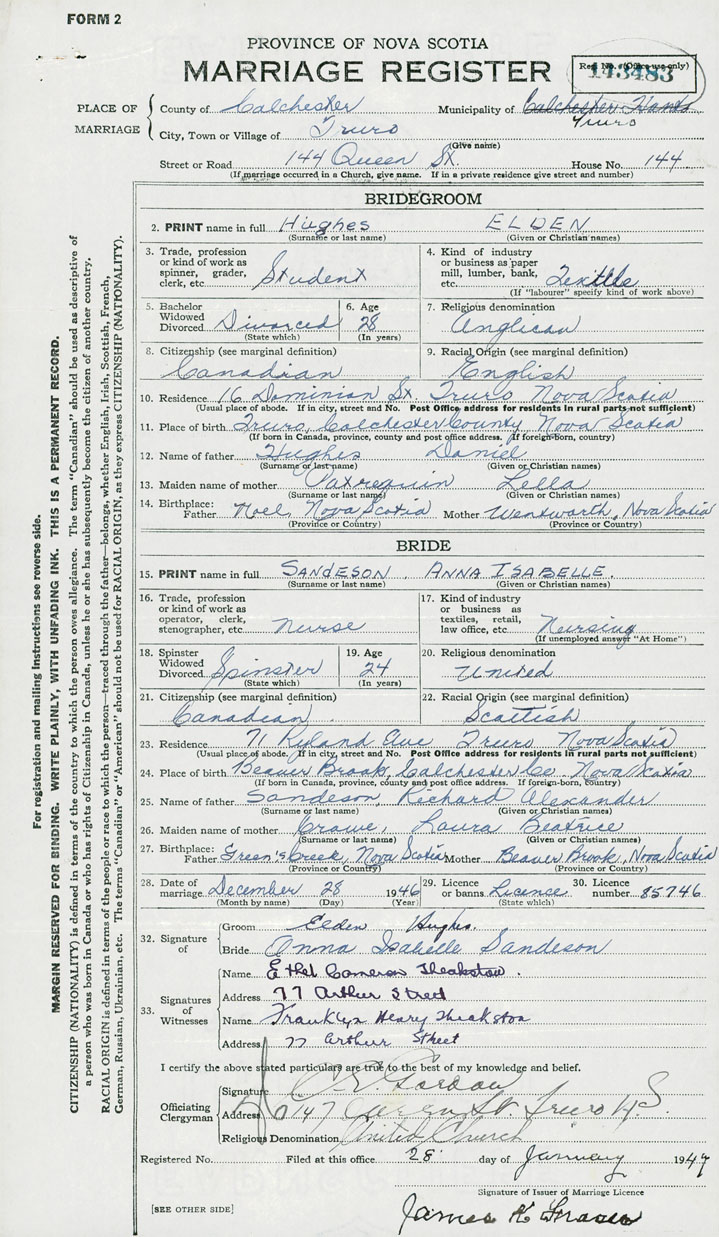 FORM 2
PROVINCE OF NOVA SCOTIA
MARRIAGE REGISTER
Reg. No. (Office use only)
143483
PLACE OF MARRIAGE
County of Colchester Municipality of Colchester Hants
Truro
City, Town or Village of Truro
(Give name)
Street or Road 144 Queen St. House No. 144
(If marriage occurred in a Church, give name. If in a private residence give street and number)
BRIDEGROOM
2. PRINT name in full Hughes ELDEN
(Surname or last name) (Given or Christian names)
3. Trade, profession or kind of work as spinner, grader, clerk, etc. Student
4. Kind of industry or business as paper mill, lumber, bank, etc. Textile
(If "labourer" specify kind of work above)
5. Bachelor Widowed Divorced Divorced
(State which)
6. Age 28
(In years)
7. Religious denomination
Anglican
8. Citizenship (see marginal definition)
Canadian
9. Racial Origin (see marginal definition)
English
10. Residence 16 Dominion St. Truro Nova Scotia
(Usual place of abode. If in city, street and No. Post Office address for residents in rural parts not sufficient)
11. Place of birth Truro, Colchester County Nova Scotia
(If born in Canada, province, county and post office address. If foreign-born, country)
12. Name of father Hughes Daniel
(Surname or last name) (Given or Christian names)
13. Maiden name of mother Patrequin Lella
(Surname or last name) (Given or Christian names)
14. Birthplace: Father Noel, Nova Scotia Mother Wentworth, Nova Scotia
(Province or Country) (Province or Country)
BRIDE
15. PRINT name in full SANDESON, ANNA ISABELLE.
(Surname or last name) (Given or Christian names)
16. Trade, profession or kind of work as operator, clerk, stenographer, etc. Nurse
17. Kind of industry or business as textiles, retail, law office, etc. Nursing
(If unemployed answer "At Home")
18. Spinster Widowed Divorced Spinster
(State which)
19. Age 24
(In years)
20. Religious denomination
United
21. Citizenship (see marginal definition)
Canadian.
22. Racial Origin (see marginal definition)
Scottish
23. Residence 71 Ryland Ave Truro Nova Scotia
(Usual place of abode. If in city, street and No. Post Office address for residents in rural parts not sufficient)
24. Place of birth Beaver Brook, Colchester Co. Nova Scotia
(If born in Canada, province, county and post office address. If foreign-born, country)
25. Name of father Sandeson, Richard Alexander
(Surname or last name) (Given or Christian names)
26. Maiden name of mother Crowe, Laura Beatrice
(Surname or last name) (Given or Christian names)
27. Birthplace: Father Green's Creek, Nova Scotia Mother Beaver Brook, Nova Scotia
(Province or Country) (Province or Country)
28. Date of marriage December 28 1946
(Month by name) (Day) (Year)
29. Licence or banns Licence
(State which)
30. Licence number 85746
32. Signature of
Groom Elden Hughes.
Bride Anna Isabelle Sandeson
33. Signatures of Witnesses
Name Ethel Cameron Theakston.
Address 77 Arthur Street
Name Franklyn Henry Theakston
Address 77 Arthur Street
I certify the above stated particulars are true to the best of my knowledge and belief.
Officiating Clergyman
Signature C E Gordon
Address 147 Queen St. Truro N.S.
Religious Denomination United Church
Registered No. Filed at this office 28 day of January 1947
Signature of Issuer of Marriage Licence
[SEE OTHER SIDE]
James K Fraser
For registration and mailing instructions see reverse side.
MARGIN RESERVED FOR BINDING. WRITE PLAINLY, WITH UNFADING INK. THIS IS A PERMANENT RECORD.
CITIZENSHIP (NATIONALITY) is defined in terms of the country to which the person owes allegiance. The term "Canadian" should be used as descriptive of
a person who was born in Canada or who has rights of Citizenship in Canada, unless he or she has subsequently become the citizen of another country.
RACIAL ORIGIN is defined in terms of the people or race to which the person—traced through the father—belongs, whether English, Irish, Scottish, French,
German, Russian, Ukrainian, etc. The terms "Canadian" or "American" should not be used for RACIAL ORIGIN, as they express CITIZENSHIP (NATIONALITY).